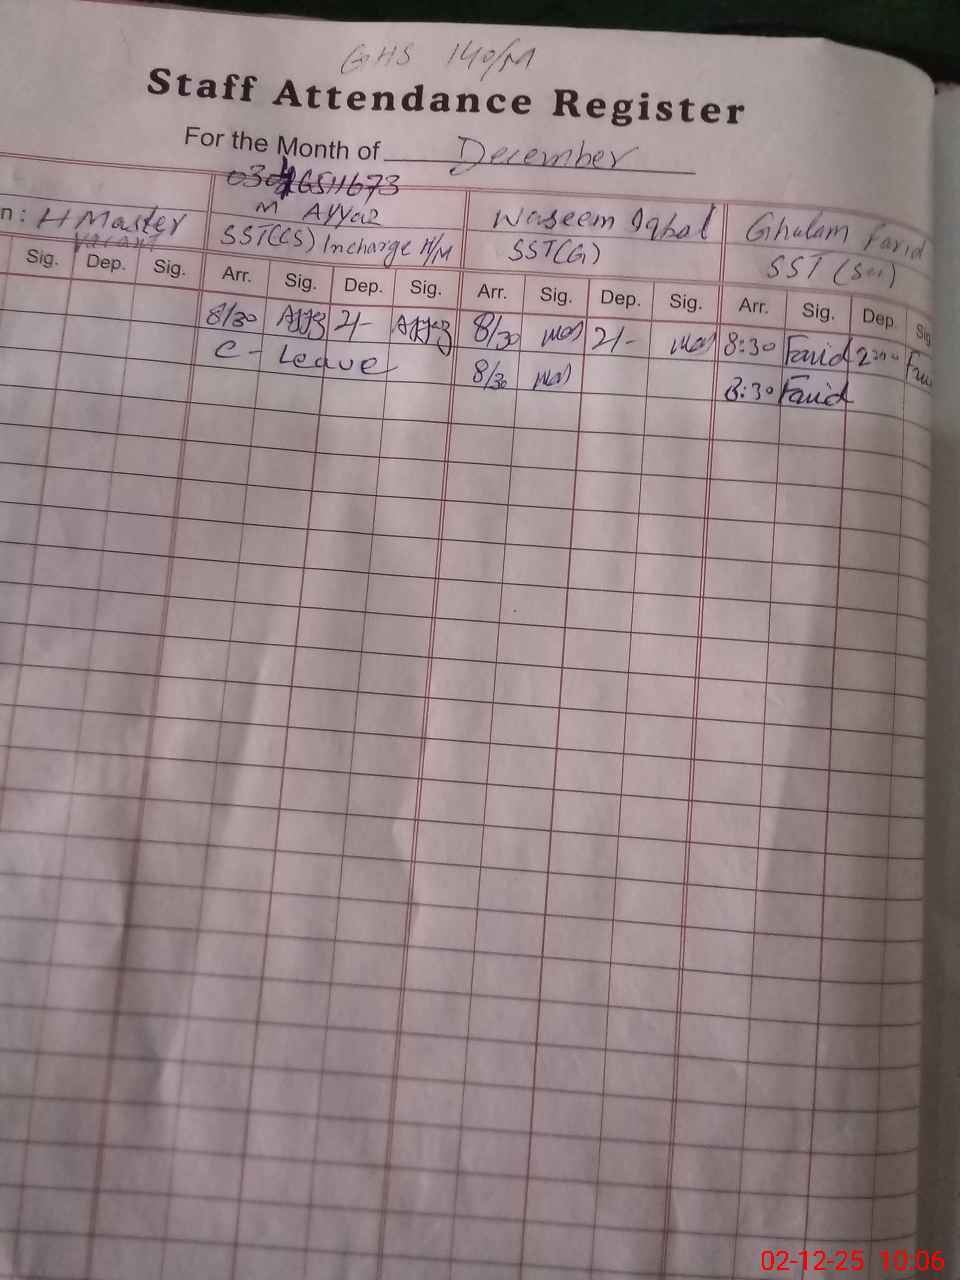 GHS 140/M
Staff Attendance Register
For the Month of December
n: H Master
Vacant
M Ayyaz
SST(CS) Incharge H/M
Waseem Iqbal
SST(G)
Ghulam Farid
SST (Sci)
Sig. Dep. Sig. Arr. Sig. Dep. Sig. Arr. Sig. Dep. Sig. Arr. Sig. Dep. Sig
8/30 2/- 8/30 2/- 8:30 Farid
C - Leave 8/30 8:30 Farid
02-12-25 10:06